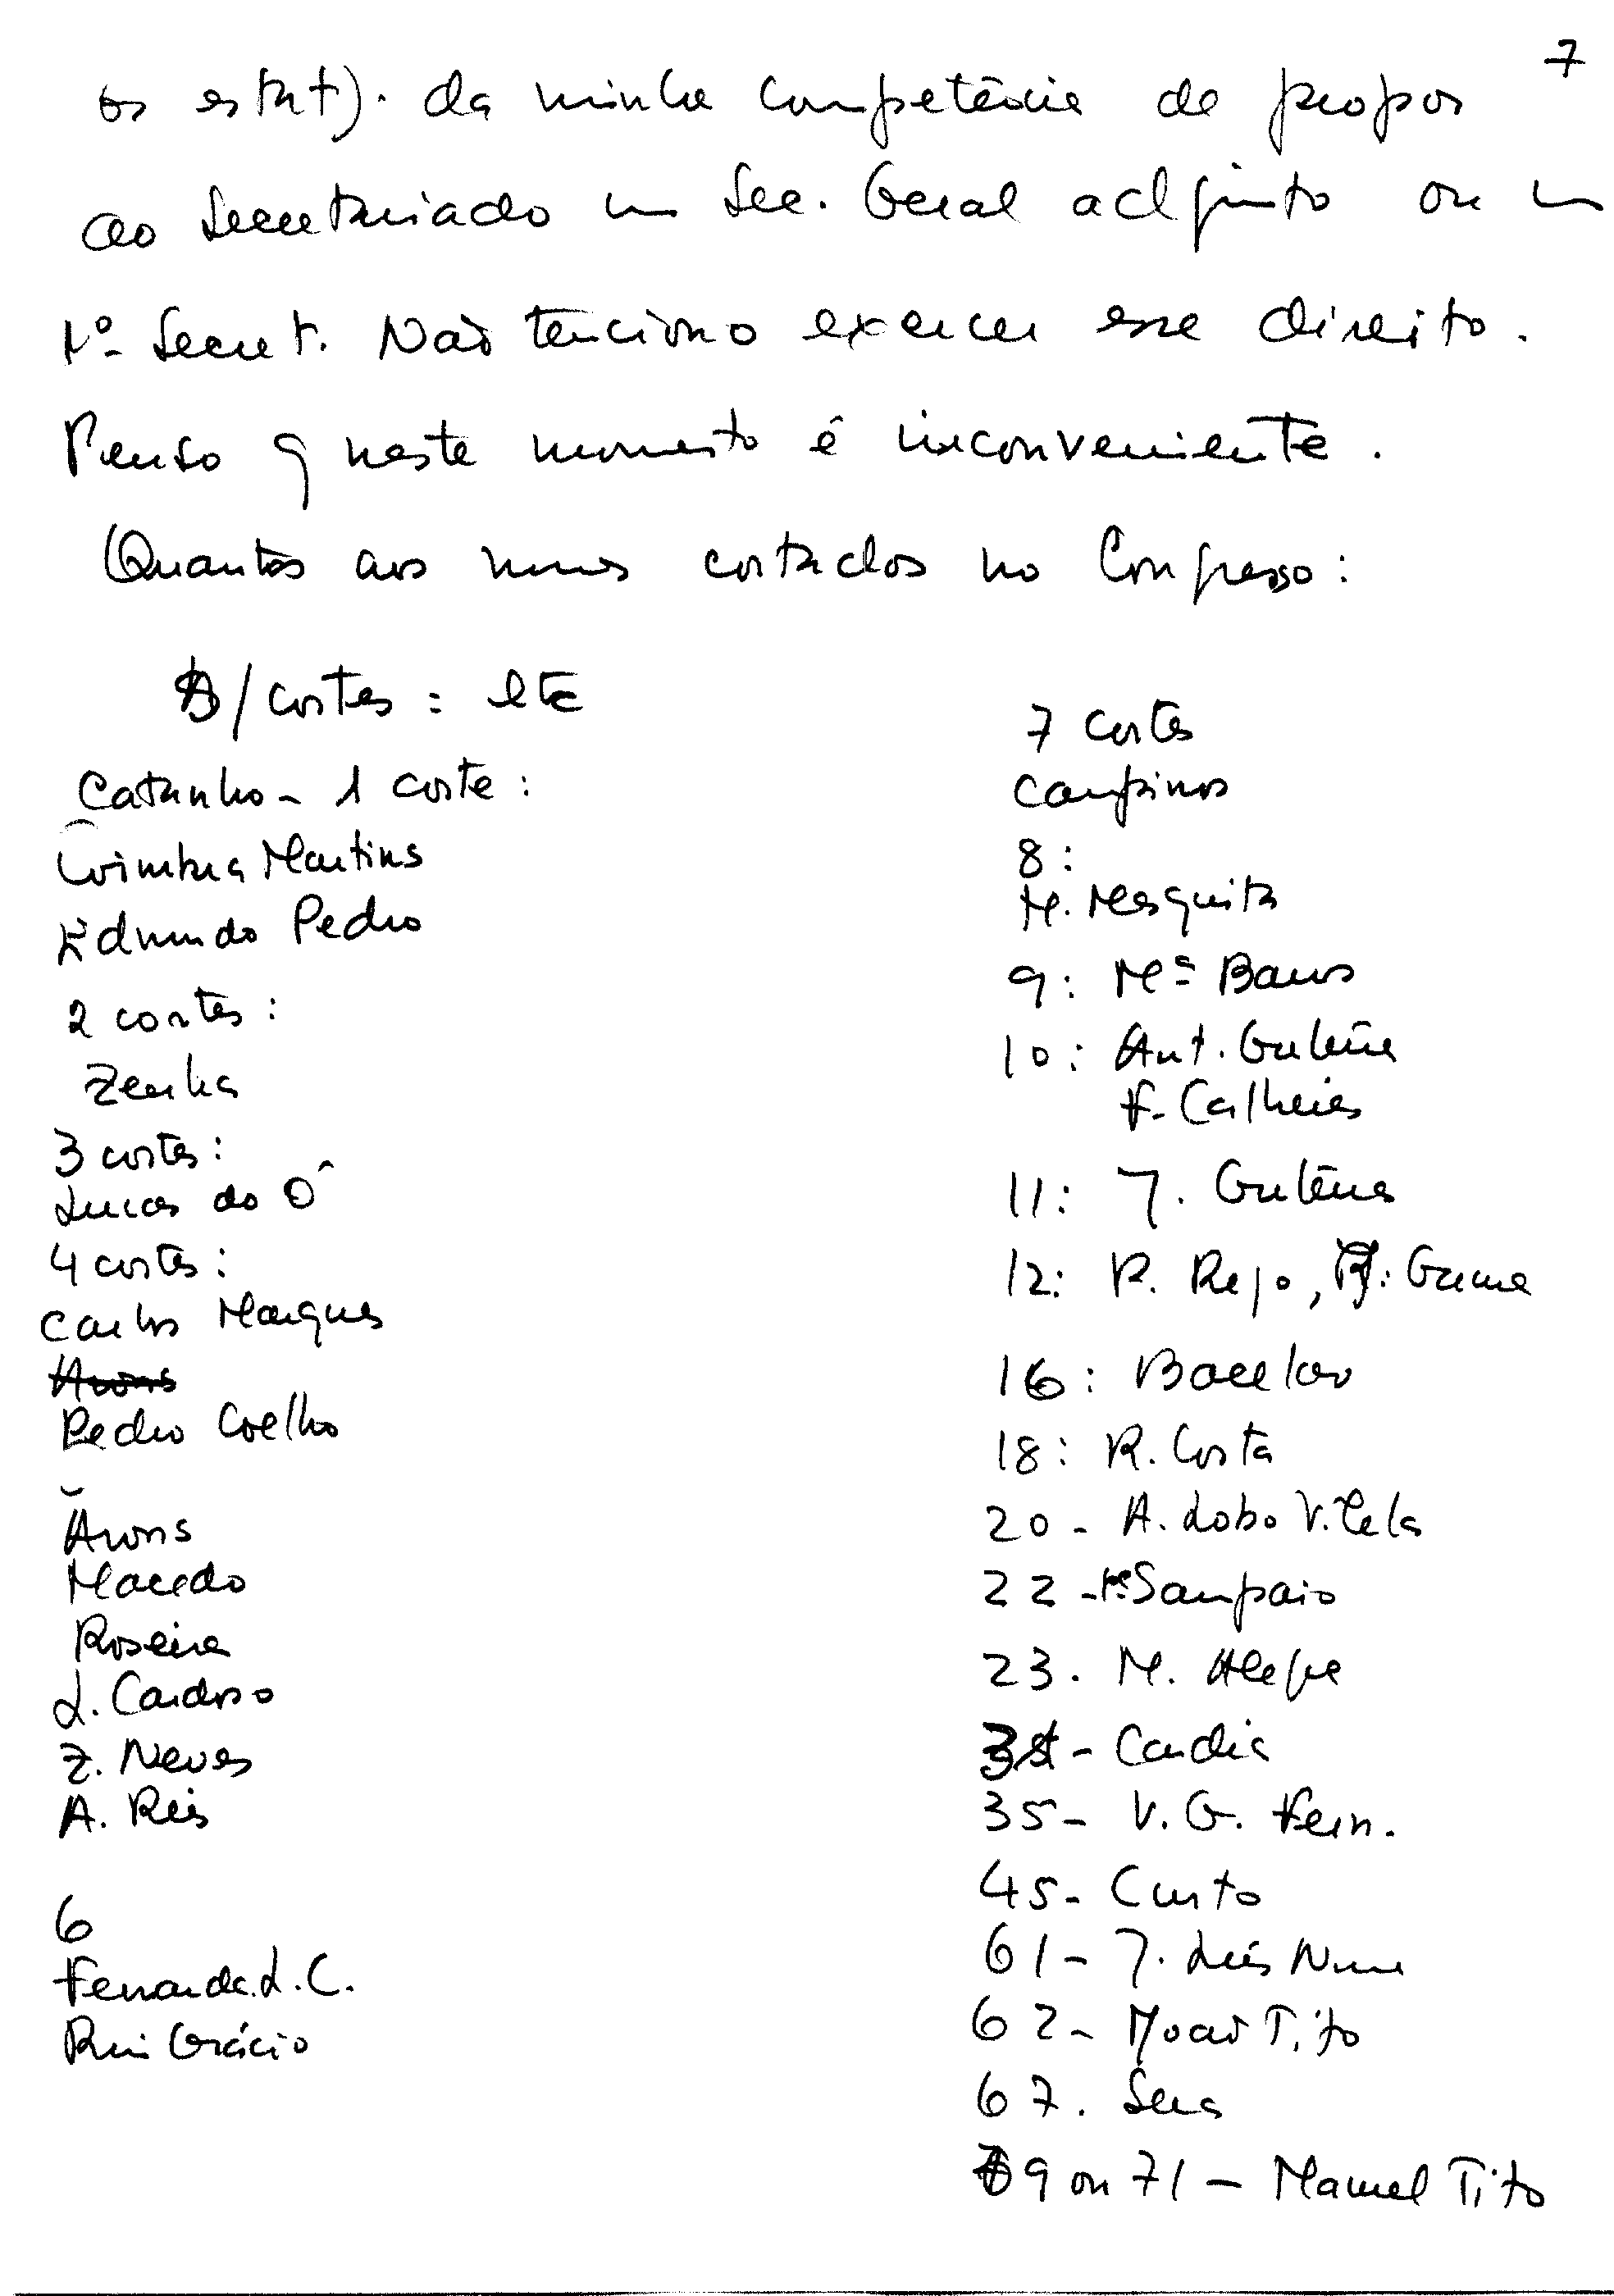 7
os estat). da minha competência de propor
ao Secretariado um Sec. Geral adjunto ou um
1º Secret. Não tenciono exercer esse direito.
Penso q neste momento é inconveniente.
Quantos aos nomes cortados no Congresso:
/cortes: etc
Catanho - 1 corte:
Coimbra Martins
Edmundo Pedro
2 cortes:
Zenha
3 cortes:
Lucas do Ó
4 cortes:
Carlos Marques
Arons
Pedro Coelho
Arons
Macedo
Roseira
L. Cardoso
Z. Neves
A. Reis
6
Fernanda. L. C.
Rui Grácio
7 cortes
Campinos
8:
M. Mesquita
9: Mª Barros
10: Ant. Guterres
F. Calheiros
11: J. Guterres
12: R. Rego, J. Gama
16: Bacelar
18: R. Costa
20 - A. Lobo Vilela
22 - Sampaio
23. M. Alegre
- Cardia
35 - V. G. Fern.
45 - Curto
61 - J. Luís Nunes
62 - Moar Tito
67. Seus
69 ou 71 - Manuel Tito